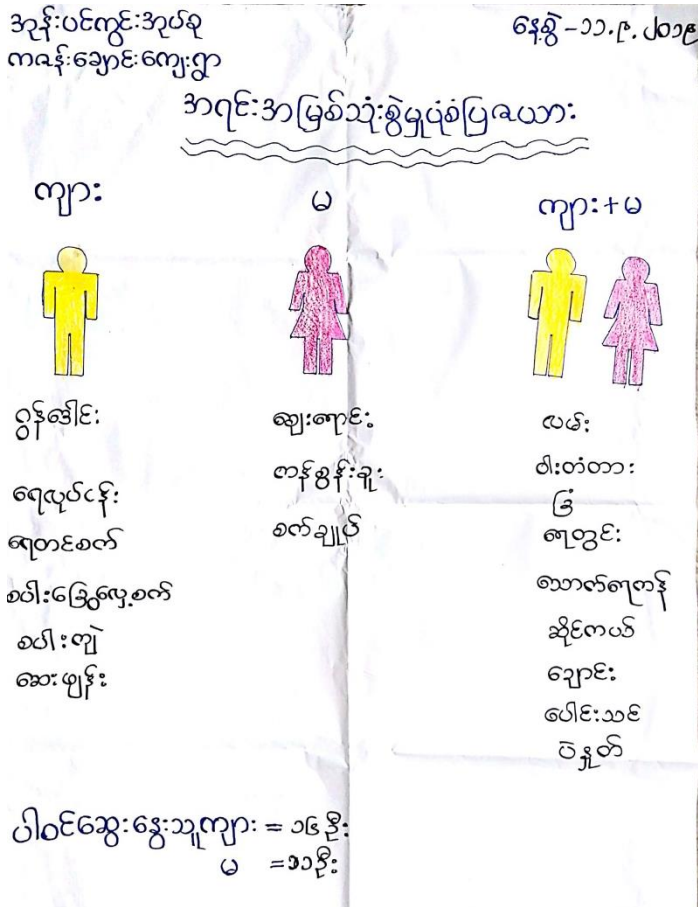 အုန်းပင်ကွင်းအုပ်စု
ကဇန်းချောင်းကျေးရွာ
နေ့စွဲ - ၁၁.၉.၂၀၁၉
အရင်းအမြစ်သုံးစွဲမှုပုံစံပြဇယား
ကျား
မ
ကျား+မ
ဂွန်ဒေါင်း
ရေလုပ်ငန်း
ရေတင်စက်
စပါးခြွေလှေ့စက်
စပါးကျဲ
ဆေးဖျန်း
ဈေးရောင်း
ကန်စွန်းခူး
စက်ချုပ်
လမ်း
ဝါးတံတား
ခြံ
ရေတွင်း
သောက်ရေကန်
ဆိုင်ကယ်
ချောင်း
ပေါင်းသင်
ပဲနှုတ်
ပါဝင်ဆွေးနွေးသူကျား = ၁၆ ဦး
မ = ၁၁ဦး